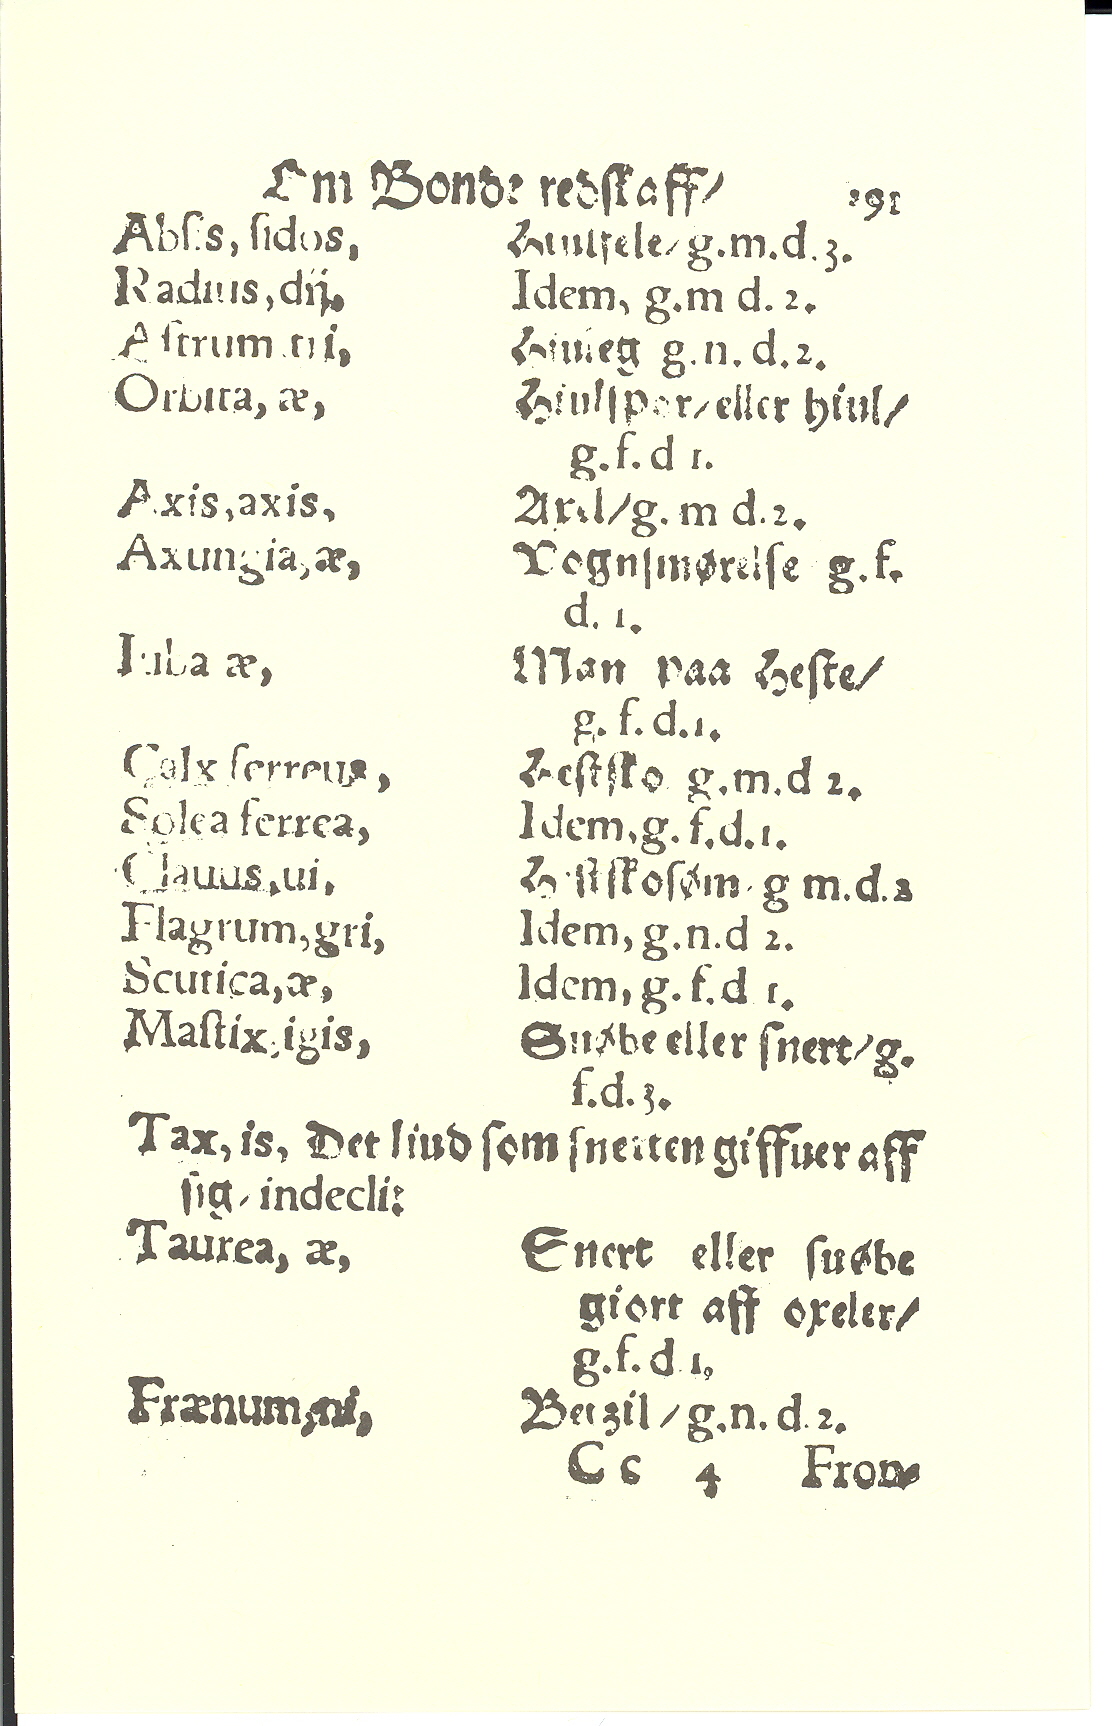 Om Bonde redſkaff/ 191
Abſis, ſidos, Hiulfele/ g.m.d.3.
Radius, dij, Idem, g.m d. 2.
Aſtrum tri, g.n.d.2.
Orbita, æ, Hiulſpor/ eller hiul/
g.f.d 1.
Axis, axis, Axel/ g. m d.2.
Axungia, æ, Vognſmørelſe g.f.
d. 1.
Iuba æ, Man paa Heſte/
g. f.d.1.
Calx ferreus, Heſtſko g.m.d 2.
Solea ferrea, Idem, g.f.d.1.
Clauus, ui, Heſtſkoſøm g m.d.2
Flagrum, gri, Idem, g.n.d 2.
Scutica, æ, Idem, g.f.d 1.
Maſtix, igis, Suøbe eller ſnert/ g.
f.d.3.
Tax, is, Det liud ſom ſnerten giffuer aff
ſig/ indecli:
Taurea, æ, Snert eller ſuøbe
giort aff oxeler/
g.f.d 1,
Frænum, ni, Beizil/ g.n.d.2.
C c 4 Fron-